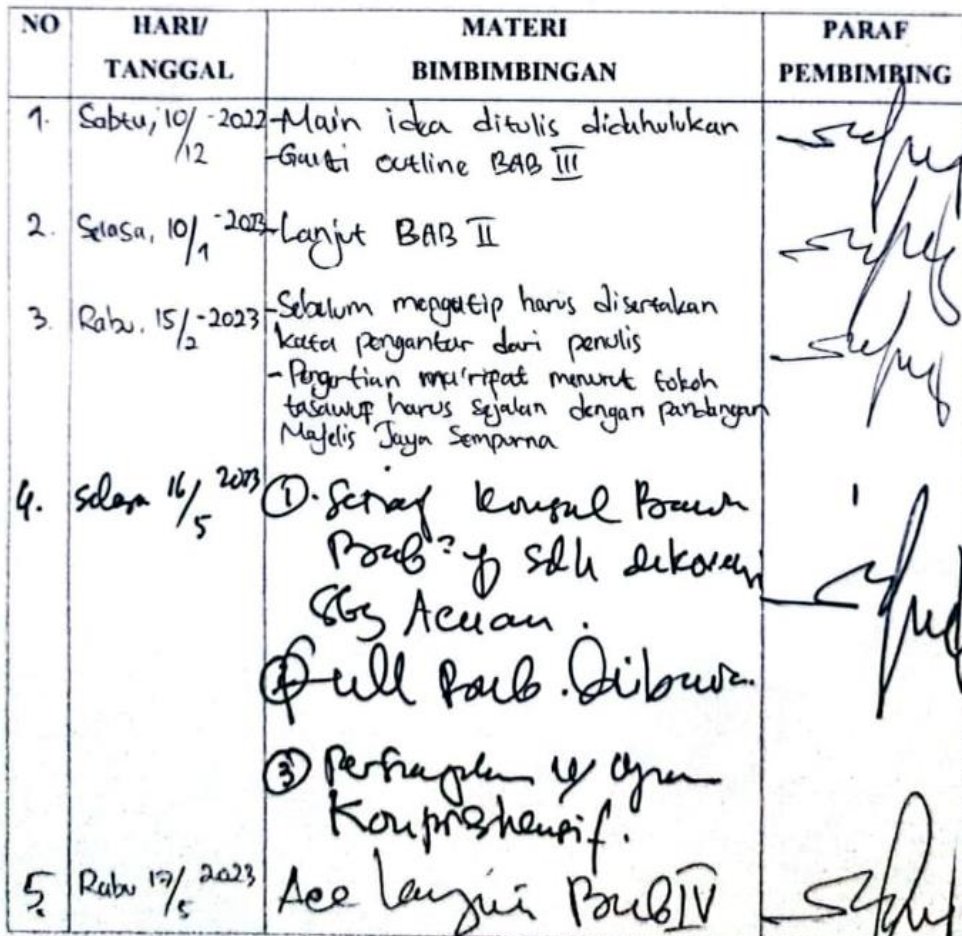 NO HARI/ TANGGAL MATERI BIMBIMBINGAN PARAF PEMBIMBING
1. Sabtu, 10/12-2022 -Main idea ditulis didahulukan
-Ganti outline BAB III
2. Selasa, 10/1-2023 -Lanjut BAB II
3. Rabu, 15/2-2023 -Sebelum mengutip harus disertakan
kata pengantar dari penulis
-Pengertian ma'ripat menurut tokoh
tasawuf harus sejalan dengan pandangan
Majelis Jaya Sempurna
4. Selasa 16/5 2023 ①. Setiap konsul Bawa
Bab² yg sdh dikoreksi
sbg Acuan.
② Full Bab. Dibawa.
③ Persiapkan
Komprehensif.
5. Rabu 17/5 2023 Acc Bab IV